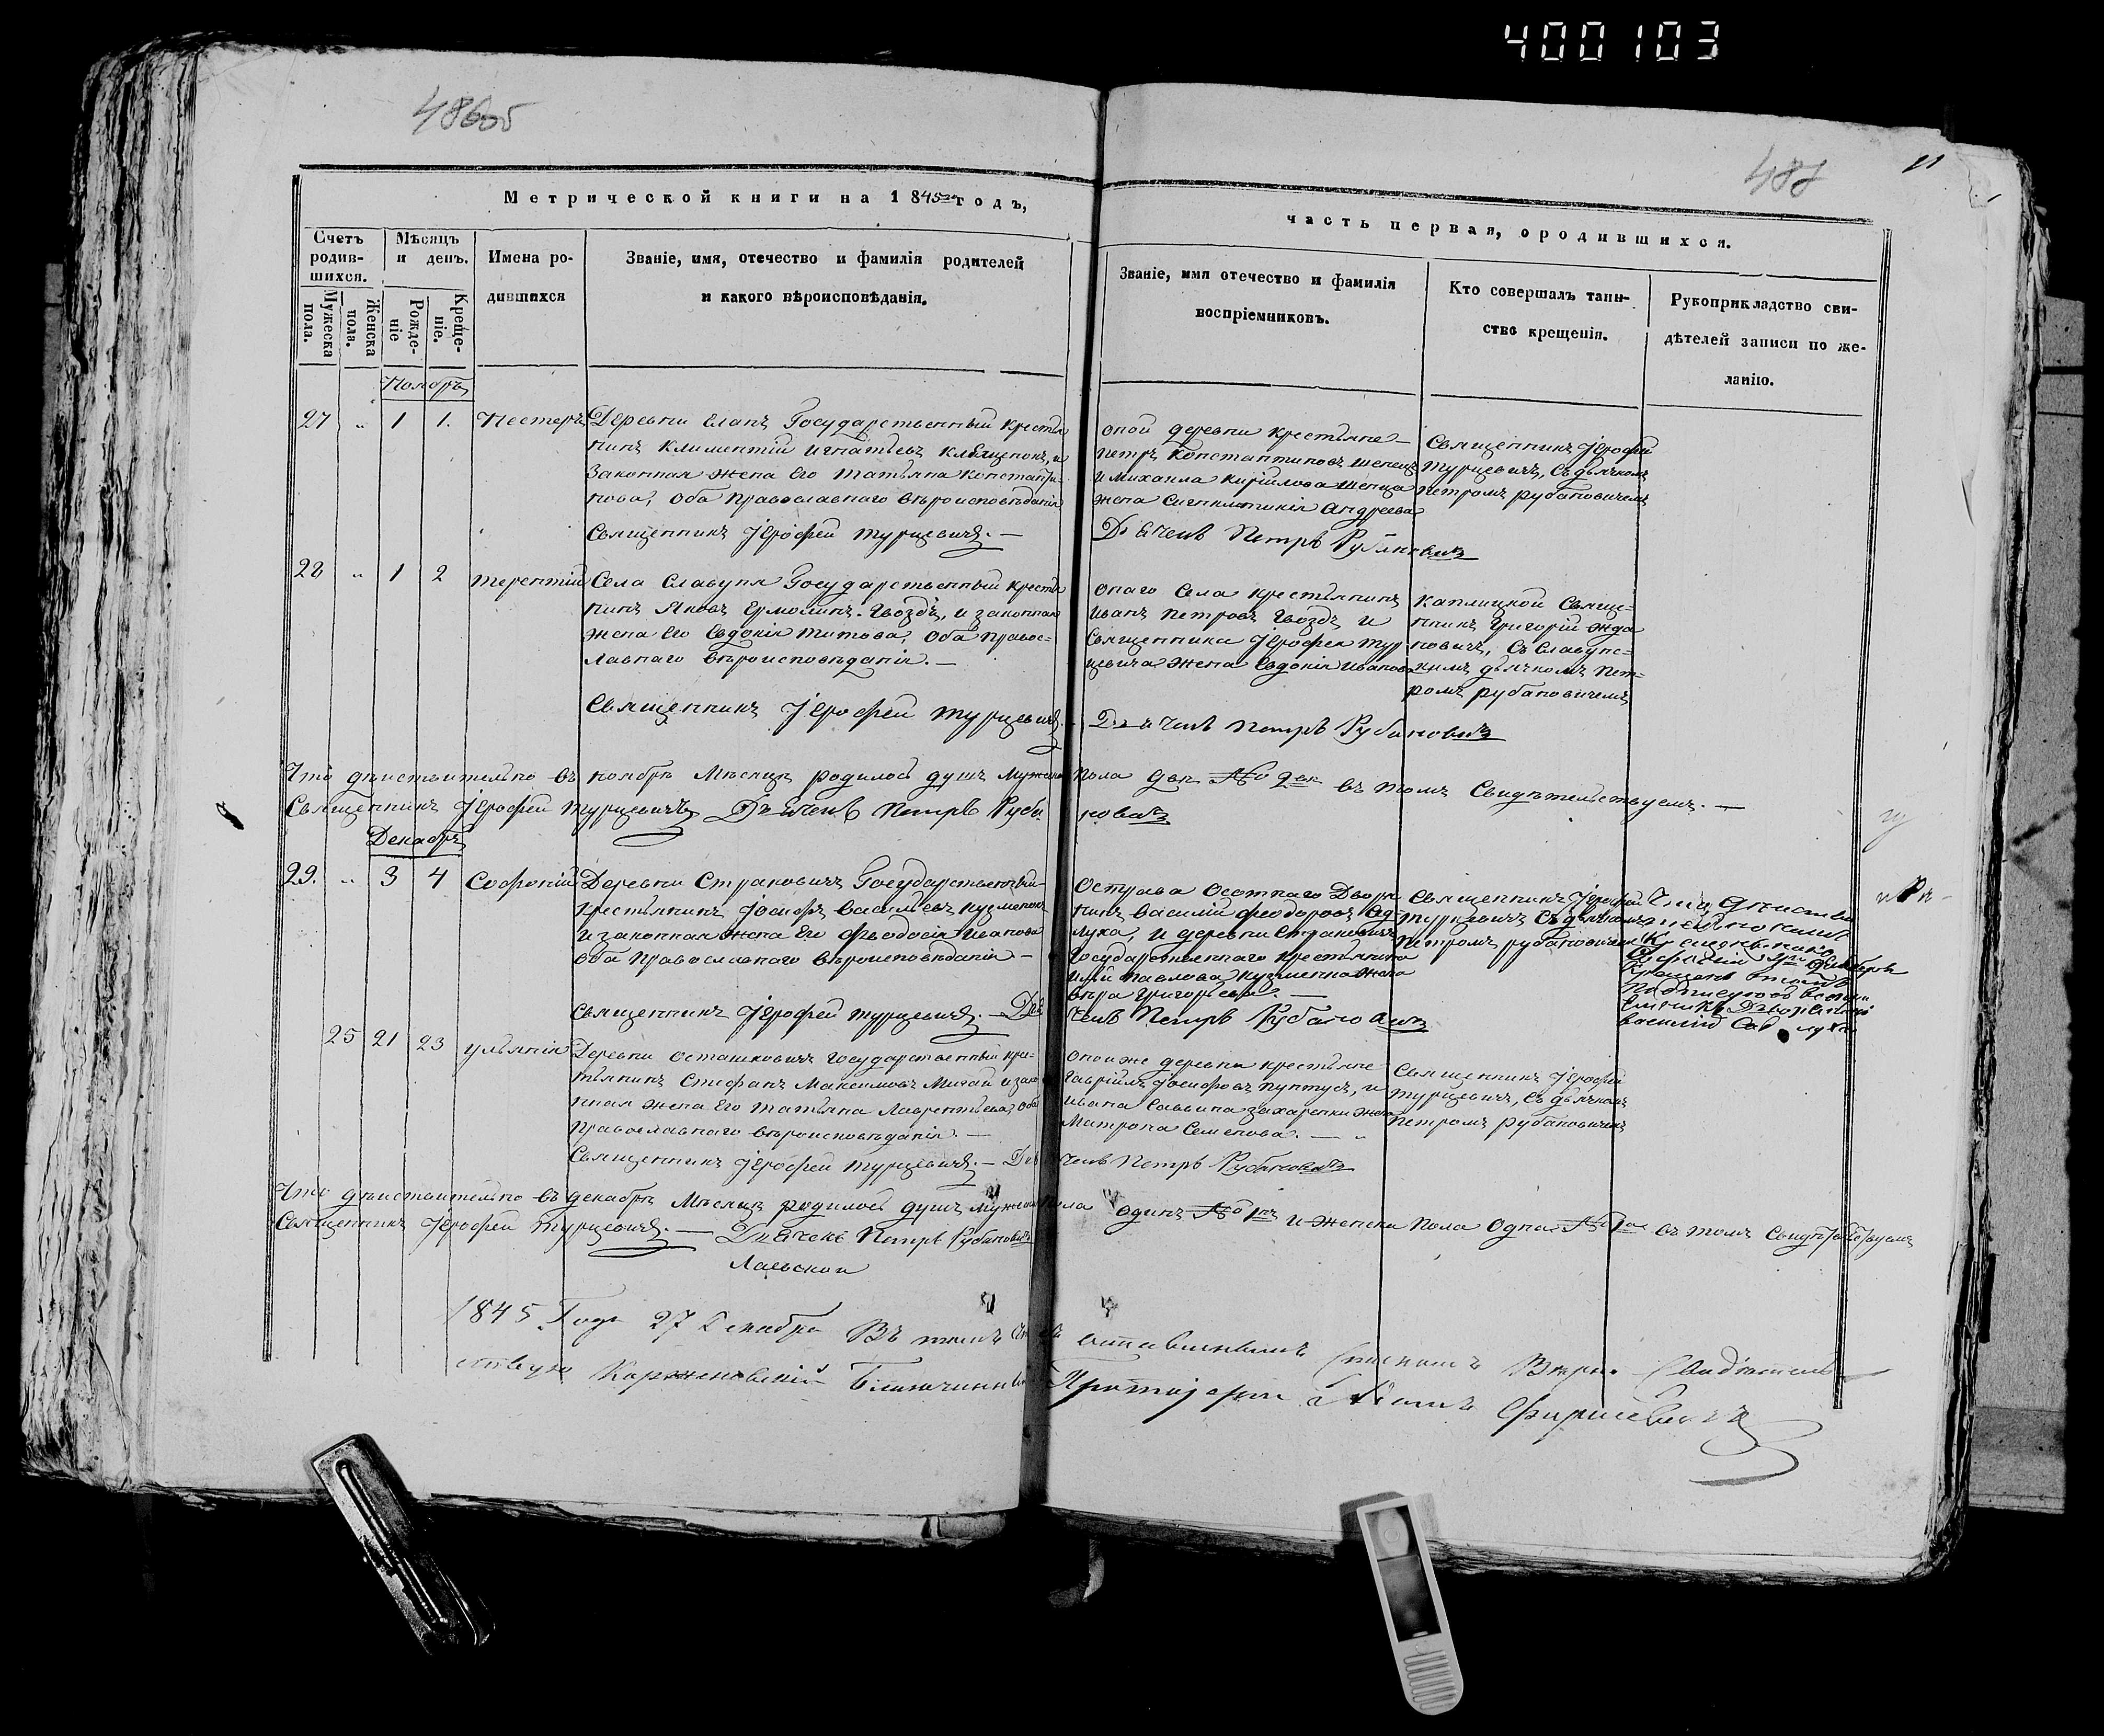 400103
486об
488
11
Метрической книги на 1845го годъ,
часть первая, ородившихся.
Счетъ родив-шихся.
Мужеска пола.
Женска пола.
Мѣсяцъ и день.
Рожде-ніе
Креще-ніе.
Имена ро-
дившихся
Званіе, имя, отечество и фамилія родителей
и какого вѣроисповѣданія.
Званіе, имя отечество и фамилія
воспріемниковъ.
Кто совершалъ таин-
ство крещенія.
Рукоприкладство сви-
дѣтелей записи по же-
ланію.
Ноябрь
27 „ 1 1. Нестеръ
Деревни Еланъ Государственный крестья
нинъ Климентій Игнатьевъ и
Законная жена Его Татьяна Константи-
нова, Оба Православнаго вѣроисповѣданія
Священникъ Іерофей Турцевичъ. —
оной деревни крестьяне
Петръ Константиновъ Шепец
и Михаила Кирилова Шепца
жена Андреева
Дьячекъ Петръ Рубановичъ
Священникъ Іерофей
Турцевичъ, Съ дьячкомъ
Петромъ Рубановичемъ
28 „ 1 2 Терентій
Села Славупя Государственный крестья
нинъ Яковъ Ермолинъ Гвоздь, и законная
жена Его Евдокія Титова, Оба Правос=
лавнаго вѣроисповѣданія. —
Священникъ Іерофей Турцевичъ. —
онаго Села крестьянинъ
Иванъ Петровъ Гвоздь и
Священника Іерофея Тур
цевича жена Евдокія Иванова
Дьячекъ Петръ Рубановичъ
Каплицкой Свяще=
нникъ Григорій Жда
новичъ, Съ Славупс=
кимъ дьячкомъ Пет=
ромъ Рубановичемъ
Что дѣйствительно въ ноябрѣ Мѣсяцѣ родилось душъ Мужеска Пола два № 2ва въ томъ Свидѣтельствуемъ. —
Священникъ Іерофей Турцевичъ Дьячекъ Петръ Рубановичъ
Декабрь
29. „ 3 4 Софоній
Деревни Страковичъ Государственный
крестьянинъ Іосифъ Васильевъ Кузменокъ
и законная жена Его Феодосія Иванова
Оба Православнаго вѣроисповѣданія —
Священникъ Іерофей Турцевичъ. — Дья
Острова Осотнаго Дворя
нинъ Василій Феодоровъ Сад
луха, и деревни Страковичъ
Государственнаго крестьянина
Павлова Кузменка жена
Вѣра Григорьева. —
чекъ Петръ Рубановичъ
Священникъ Іерофей
Турцевичъ Съ дьячкомъ
Петромъ Рубановичемъ
25 21 23 Ульянія
Деревни Осташковичъ Государственный кре=
стьянинъ Стефанъ Максимовъ и зако
нная жена Его Татьяна Лаврентьева, Оба
Православнаго вѣроисповѣданія. —
Священникъ Іерофей Турцевичъ. — Дья
оной же деревни крестьяне
Гавріилъ Іосифовъ Пунтусъ, и
Ивана Саввина Захаренки жена
Матрона Семенова. — „
чекъ Петръ Рубановичъ
Священникъ Іерофей
Турцевичъ, Съ дьячкомъ
Петромъ Рубановичемъ
Что дѣйствительно въ декабрѣ Мѣсяцѣ родилось душъ Мужеска Пола одинъ № 1нъ и женска пола Одна № 1на въ томъ Свидѣтельствуемъ
Священникъ Іерофей Турцевичъ. — Дьячекъ Петръ Рубановичъ
1845 Года 27 Декабря Въ томъ
ствую Благочинный Протоіерей